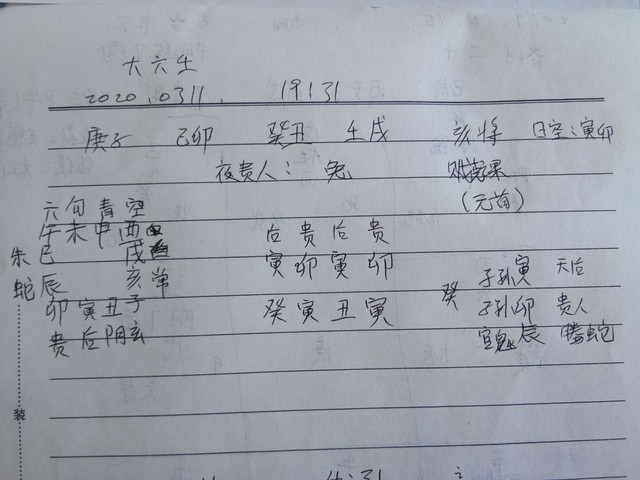 大六壬
2020.0311. 19:31
庚子 己卯 癸丑 壬戌 亥将 日空:寅卯
夜贵人: 兔
(元首)
六 勾 青 空
午 未 申 酉 后 贵 后 贵
朱 巳 戌 寅 卯 寅 卯 子孙寅 天后
蛇 辰 亥 常 癸 寅 丑 寅 癸 子孙卯 贵人
卯 寅 丑 子 官鬼辰 腾蛇
贵 后 阴 玄
装